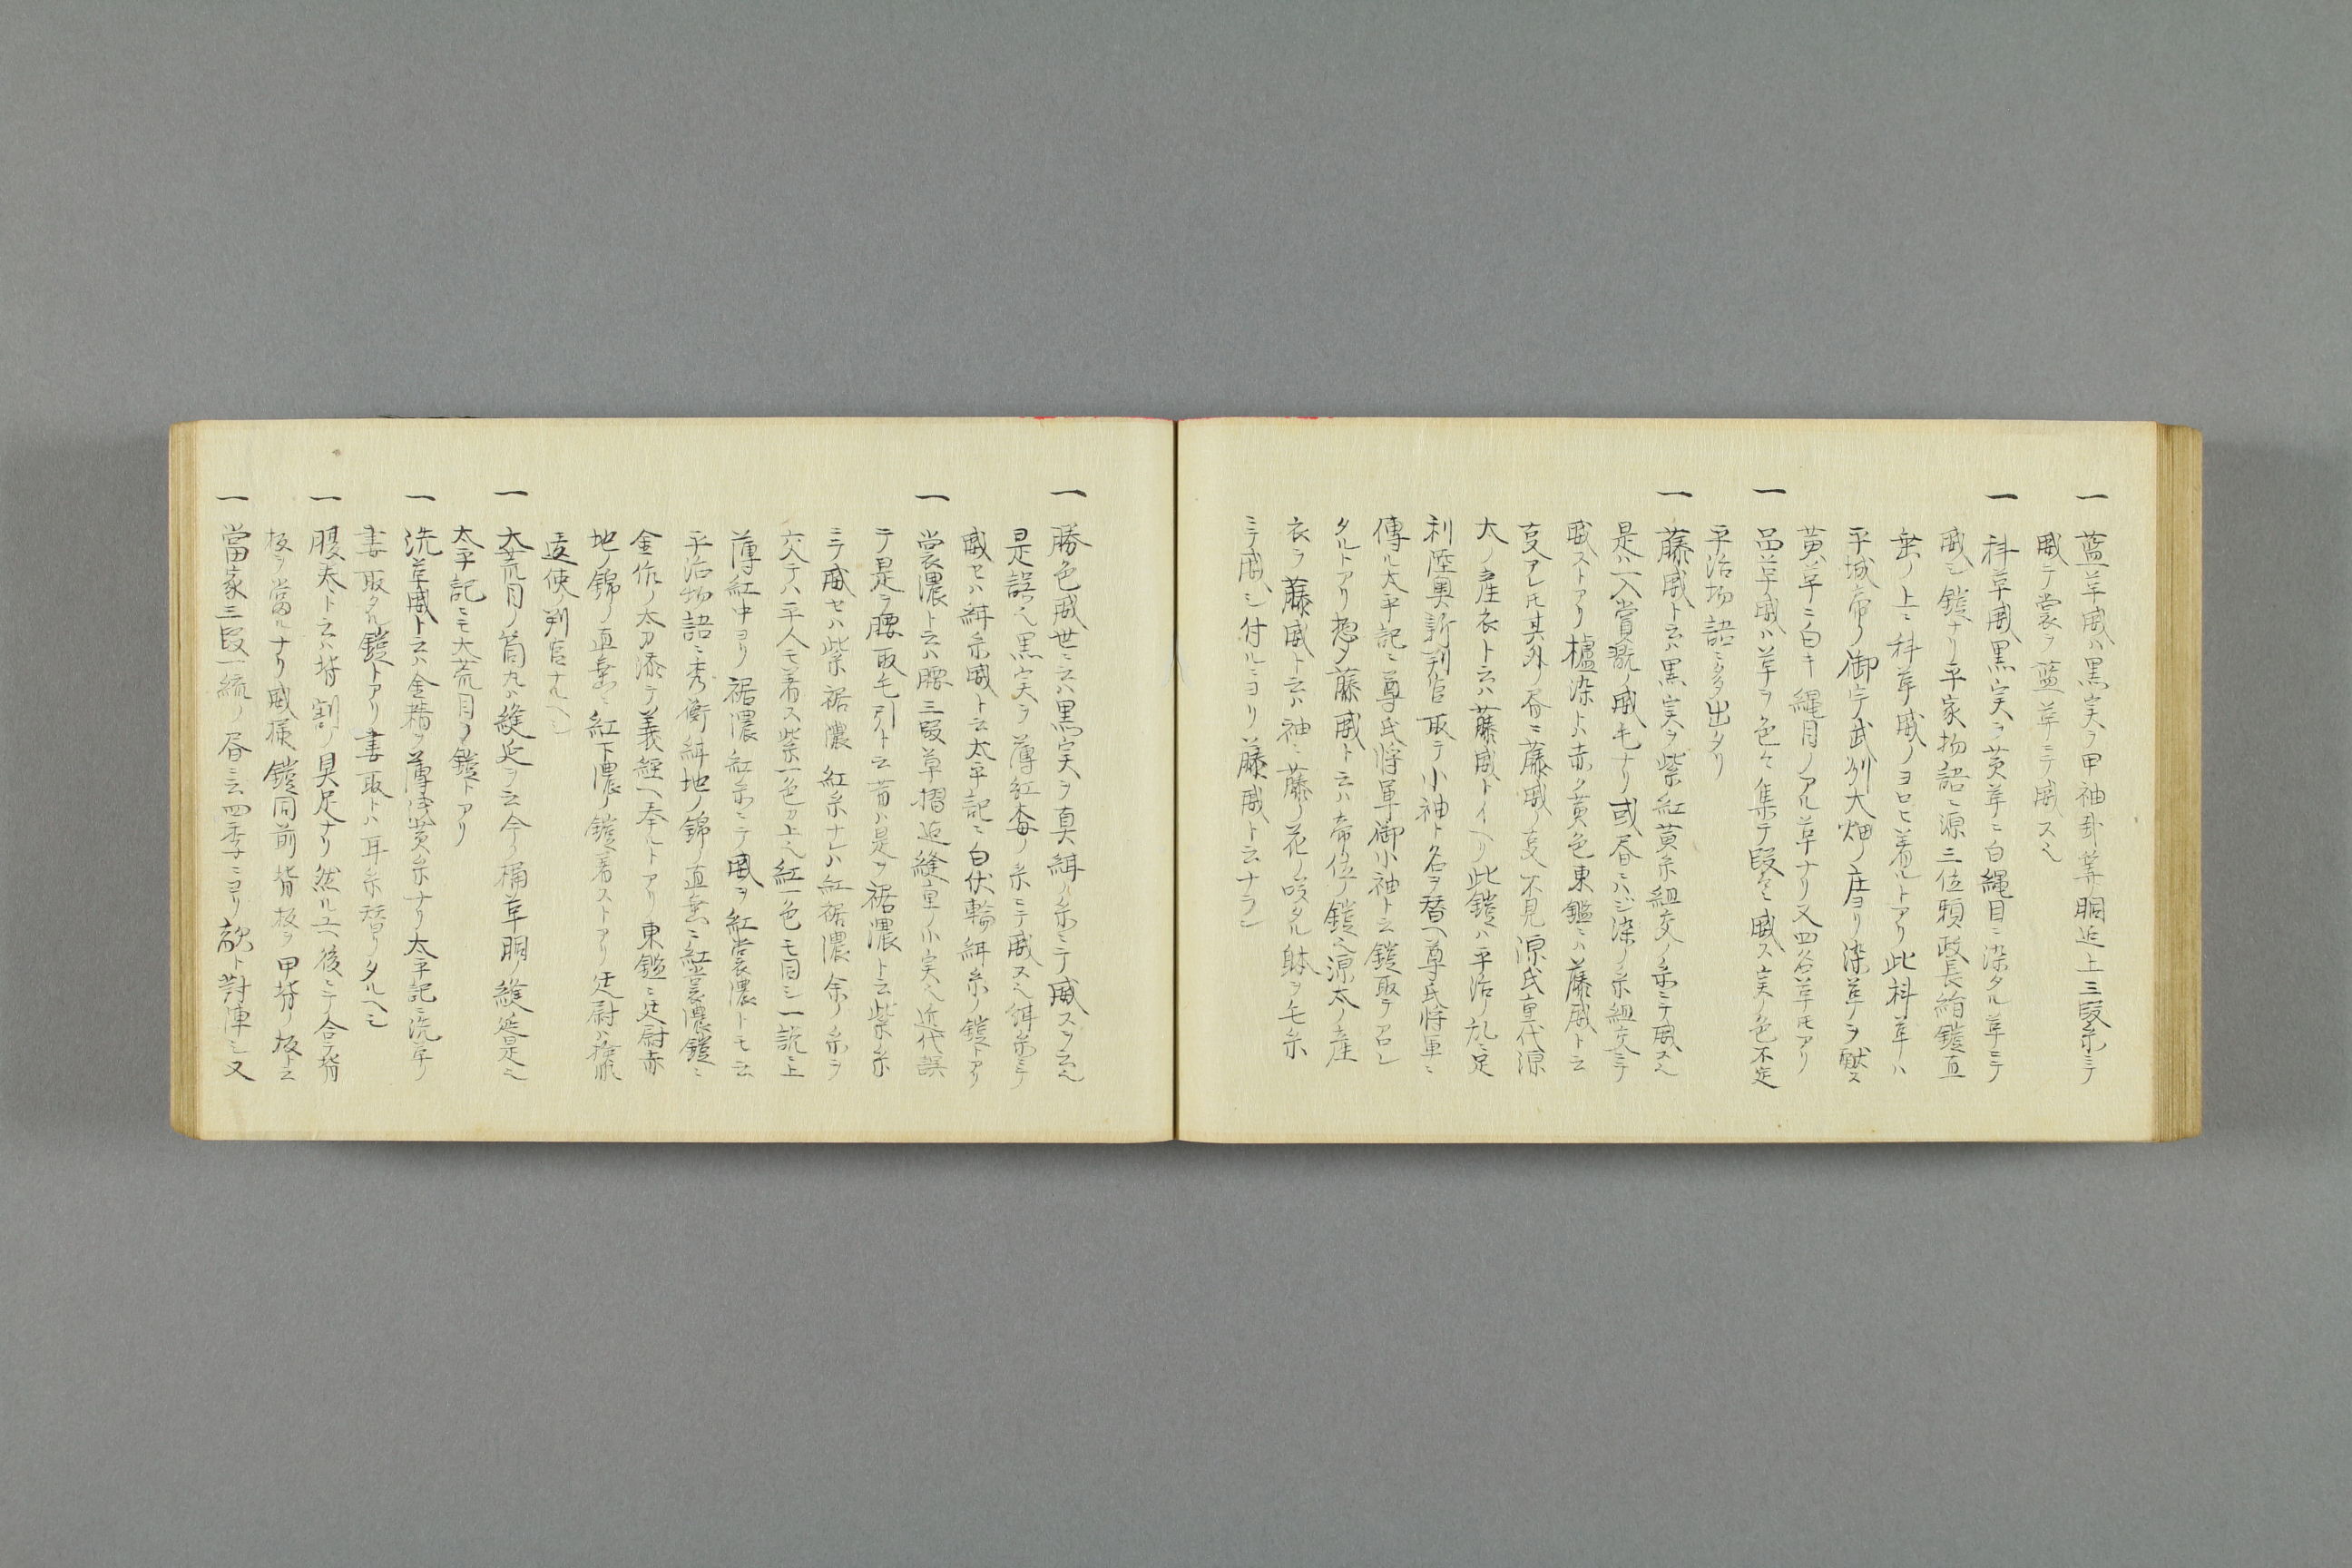 一 藍革威ハ黒実ヲ甲袖卦等胴迄上三段糸ニテ
威テ裳ヲ藍革ニテ威スヘ
一 科革威黒実ヲ黄革ニ白縄目ニ染タル革ニテ
威シ鎧ナリ平家物語ニ源三位頼政長絹鎧直
垂ノ上ニ科革威ノヨロヒ着ルトアリ此科革ハ
平城帝ノ御宇武州大畑ノ庄ヨリ染革ヲ献ス
黄革ニ白キ縄目ノアル革ナリ又四谷革モアリ
一 品革威ハ革ヲ色々集テ段々ニ威ス実ノ色不定
平治物語ニ多ク出タリ
一 藤威ト云ハ黒実ヲ紫紅黄糸組交ノ糸ニテ威スヘ
是ハ一入賞翫ノ威毛ナリ或昏ニハジ染ノ糸組交ニテ
威ストアリ櫨染ト ハ赤ク黄色東鑑ニハ藤威ト云
亥アレ圧其外ノ昏ニ藤威ノ亥不見源氏重代源
太ノ産衣ト云ハ藤威トイヘリ此鎧ハ平治ノ乱ニ足
利陸奥新判官取テ小袖ト名ヲ替ヘ尊氏将軍ニ
傳ル太平記ニ尊氏将軍御小袖ト云鎧取テアロレ
タルトアリ惣〆藤威ト云ハ帝位ノ鎧ヘ源太ノ産
衣ヲ藤威ト云ハ袖ニ藤ノ花ノ咲タル躰ヲ毛糸
ニテ威シ付ルニヨリ藤威ト云ナラン
一 勝色威世ニ云ハ黒実ヲ真紺ノ糸ニテ威スヲ云ヘ
是誤ヘ黒実ヲ薄紅梅ノ糸ニテ威スヘ紺糸ニテ
威セハ紺糸威ト云太平記ニ白伏輪ノ紺糸ノ鎧トアリ
一 裳濃ト云ハ腰三段草摺迄縫重ノ小実ヘ近代誤
テ是ヲ腰取毛引ト云昔ハ是ヲ裾濃ト云紫糸
ニテ威セハ紫裾濃紅糸ナレハ紅裾濃余ノ糸ヲ
交テハ平人モ着ス紫一色カ上ヘ紅一色モ同シ一説ニ上
薄紅中ヨリ裾濃紅糸ニテ威ヲ紅裳濃トモ云
平治物語ニ秀衡紺地ノ錦ノ直垂ニ紅裳濃鎧ニ
金作ノ太刀添テ義経ヘ奉ルトアリ東鑑ニ廷尉赤
地ノ錦ノ直垂ニ紅下濃ノ鎧着ストアリ廷尉ハ検非
違使ノ判官ナルヘシ
一 大荒目ノ筒丸ハ縫延ヲ云今ノ桶革胴ノ縫延是ヘ
太平記ニモ大荒目ノ鎧トアリ
一 洗革威ト云ハ金精ヲ薄浅黄糸ナリ太平記ニ洗革ノ
妻取タル鎧トアリ妻取トハ耳糸替リタルヘシ
一 腹太ト云ハ背割ノ具足ナリ然ル上ヘ後ニテ合テ背
板ヲ當ルナリ威様鎧同前背板ヲ甲背ノ板ト云
一 當家三段一統ノ昏ニ云四季ニヨリ敵ト對陣シ又